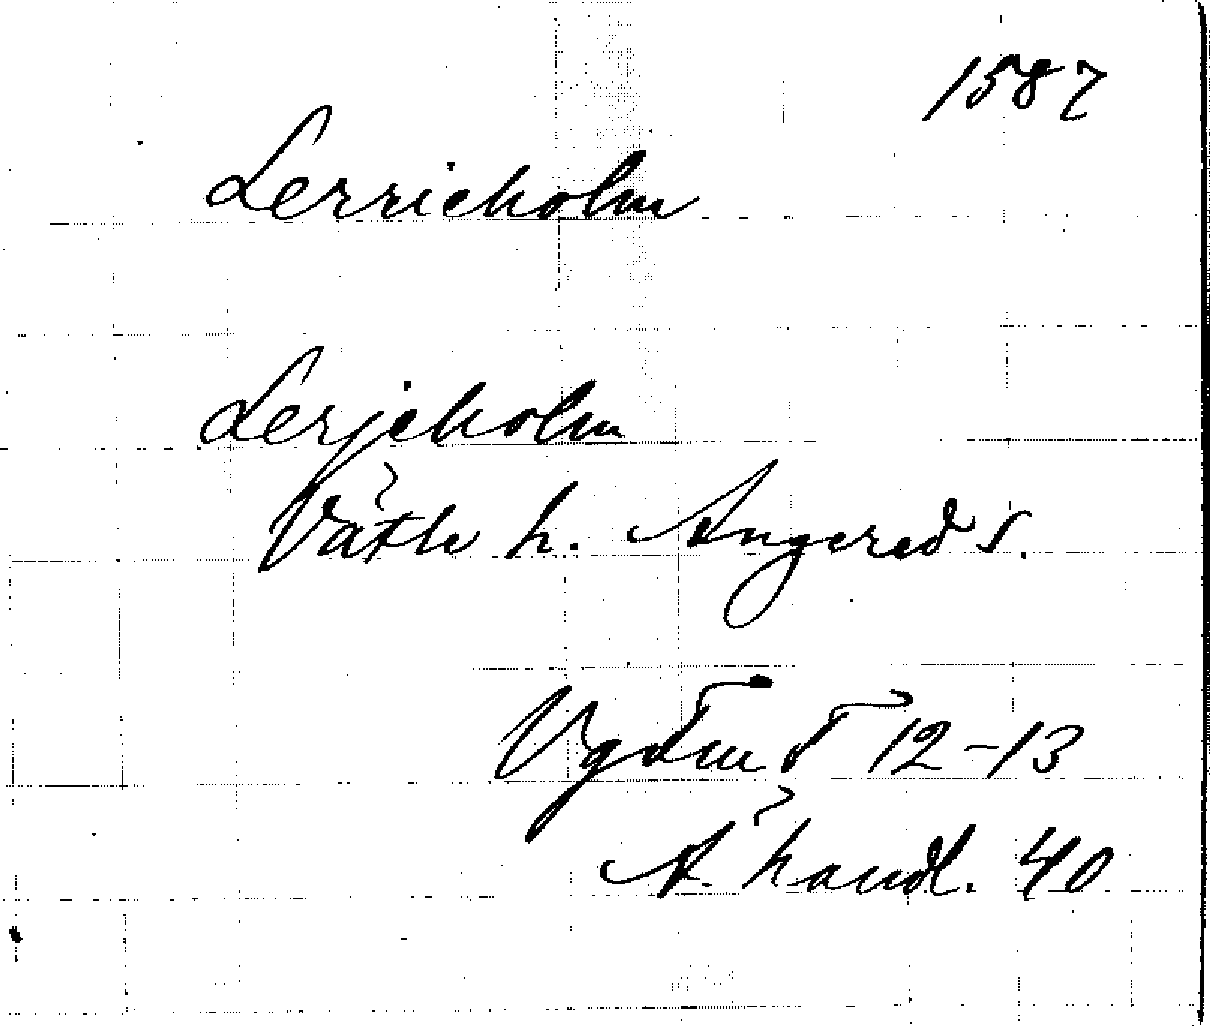 1587
Lerricholm
Lerjeholm
Vätle h. Angered s.
12-13
handl. 40